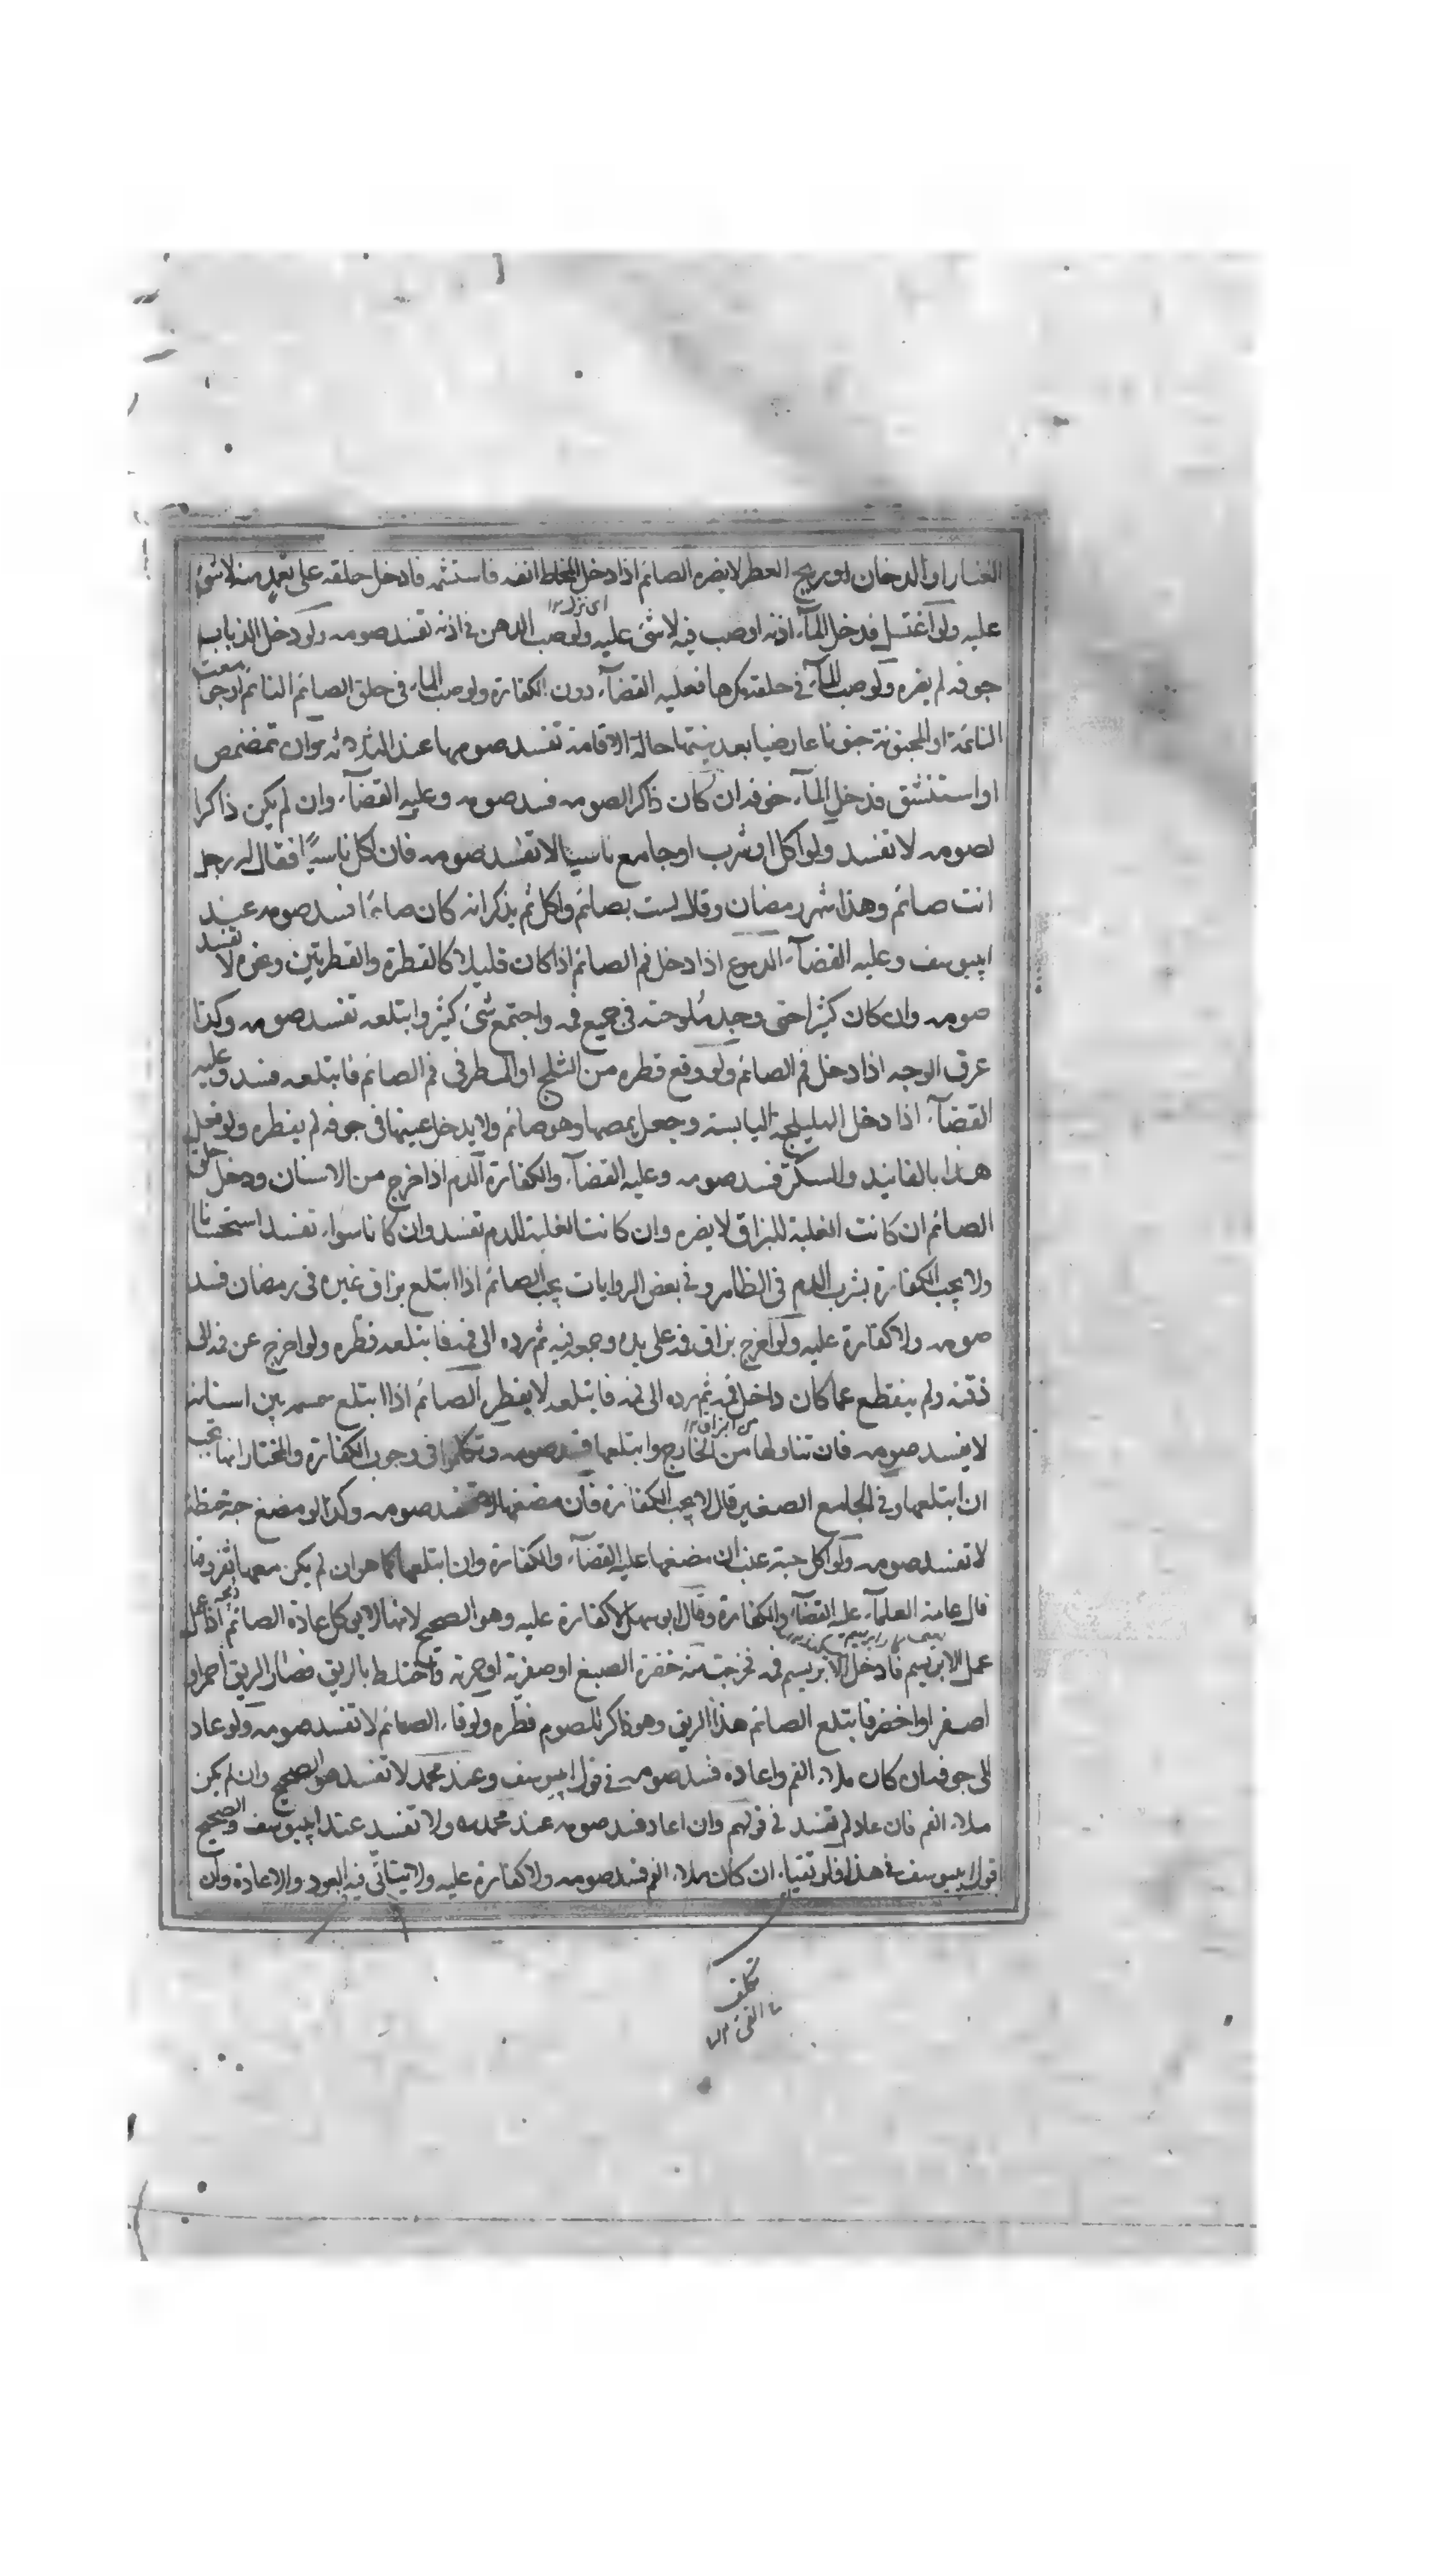 الغبار او الدخان او ريح العطر لا يضره الصائم اذا دخل المخاط انفه فاستشمه فادخل حلقه على تعمد منه لا شئ
عليه ولو اغتسل فدخل المآء اذنه او صب فيه لا شئ عليه ولو صب الدهن فى اذنه تفسد صومه ولو دخل الذباب
جوفه لم يضره ولو صب المآء فى حلقه مكرها فعليه القضآء دون الكفارة ولو صب الماء فى حلق الصائم النائم او جومعت
النائمة او المجنونة جنونا عارضيا بعد نيتها حالة الاقامة تفسد صومها عند الثلاثة وان تمضمض
او استنشق فدخل المآء جوفه ان كان ذاكرا لصومه فسد صومه وعليه القضآء وان لم يكن ذاكرا
لصومه لا تفسد ولو اكل او شرب او جامع ناسيا لا تفسد صومه فان اكل ناسيًا فقال له رجل
انت صائم وهذا شهر رمضان وقال لست بصائم واكل ثم يذكر انه كان صائما فسد صومه عند
ابيوسف وعليه القضآء الدموع اذا دخل فم الصائم اذا كان قليلا كالقطرة والقطرتين وغيره لا تفسد
صومه وان كان كثيرا حتى وجد ملوحته فى جميع فمه واجتمع شئ كثير وابتلعه تفسد صومه وكذا
عرق الوجه اذا دخل فم الصائم ولو وقع قطره من الثلج او المطر فى فم الصائم فابتلعه فسد وعليه
القضآء اذا دخل الهليلجة اليابسة وجعل يمصها وهو صائم ولا يدخل عينها فى جوفه لم يفطره ولو فعل
هذا بالفانيد والسكر فسد صومه وعليه القضآء والكفارة الدم اذا خرج من الاسنان ودخل حلق
الصائم ان كانت الغلبة للبزاق لا يضره وان كانت الغلبة للدم تفسد وان كانا سواء تفسد استحسانا
ولا يجب الكفارة بشرب الدم فى الظاهر وفى بعض الروايات يجب الصائم اذا ابتلع بزاق غيره فى رمضان فسد
صومه ولا كفارة عليه ولو اخرج بزاق فمه على يده وجمعه فيه ثم رده الى فمه فابتلعه فطره ولو اخرج عن فمه الى
ذقنه ولم ينقطع عما كان داخل فمه ثم رده الى فمه فابتلعه لا يفطر الصائم اذا ابتلع سمسمة بين اسنانه
لا يفسد صومه فان تناولها من الخارج وابتلعها فسد صومه وتكلموا فى وجوب الكفارة والمختار انها تجب
ان ابتلعها وفى الجامع الصغير قال لا يجب الكفارة فان مضغها لا تفسد صومه وكذا لو مضغ حبة حنطة
لا تفسد صومه ولو اكل حبة عنب ان مضغها عليه القضآء والكفارة وان ابتلعها كما هو ان لم يكن معها
قال عامة العلمآء عليه القضآء والكفارة وقال ابو سهل لا كفارة عليه وهو الصحيح لانها لا يوكل عادة الصائم اذا عمل
عمل الابريسم فادخل الابريسم فمه فخرجت منه خضرة الصبغ او صفرته او حمرته واختلط بالريق فصار الريق احمر او
اصفر او اخضر فابتلع الصائم هذا الريق وهو ذاكر للصوم فطره ولو قاء الصائم لا تفسد صومه ولو عاد
الى جوفه ان كان ملاء الفم واعاده فسد صومه فى قول ابيوسف وعند محمد لا تفسد هو الصحيح وان لم يكن
ملاء الفم فان عاد لم تفسد فى قولهم وان اعاد فسد صومه عند محمد ولا تفسد عند ابيوسف والصحيح
قول ابيوسف فى هذا فلو تقياء ان كان ملاء الفم فسد صومه ولا كفارة عليه ولا يتاتى فيه العود والاعادة وان
تكلف
القئ